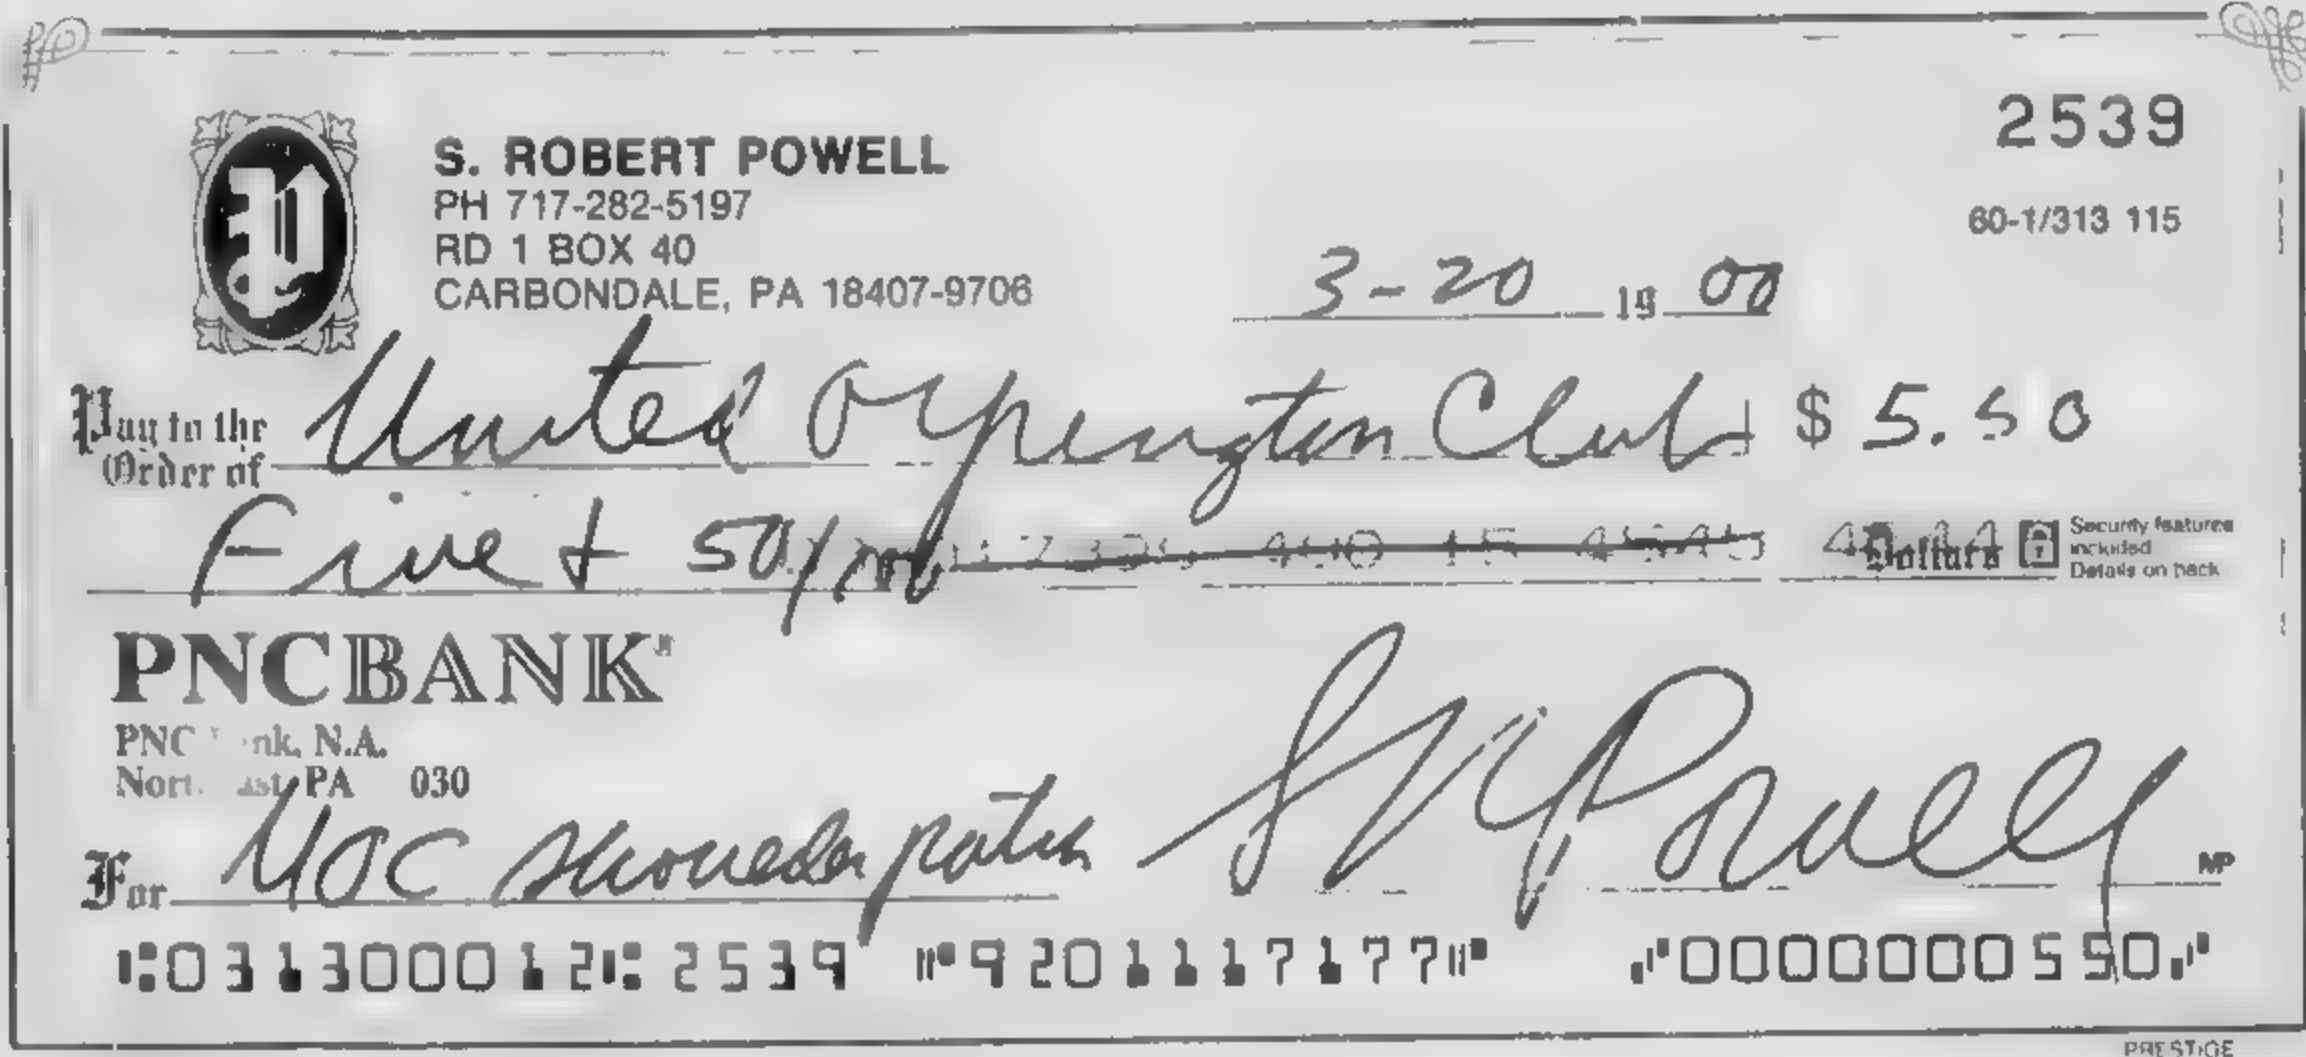 2539
S. ROBERT POWELL
PH 717-282-5197
RD 1 BOX 40
CARBONDALE, PA 18407-9706
60-1/313 115
3-20 19 00
Pay to the Order of United Orpington Club $ 5.50
Five + 50/100 Dollars
Security features included Details on back
PNCBANK
PNC nk, N.A.
Nort ast PA 030
For UOC shoulder patch S R Powell MP
⑆031300012⑆ 2539 ⑈9201117177⑈ ⑇0000000550⑇
PRESTIGE